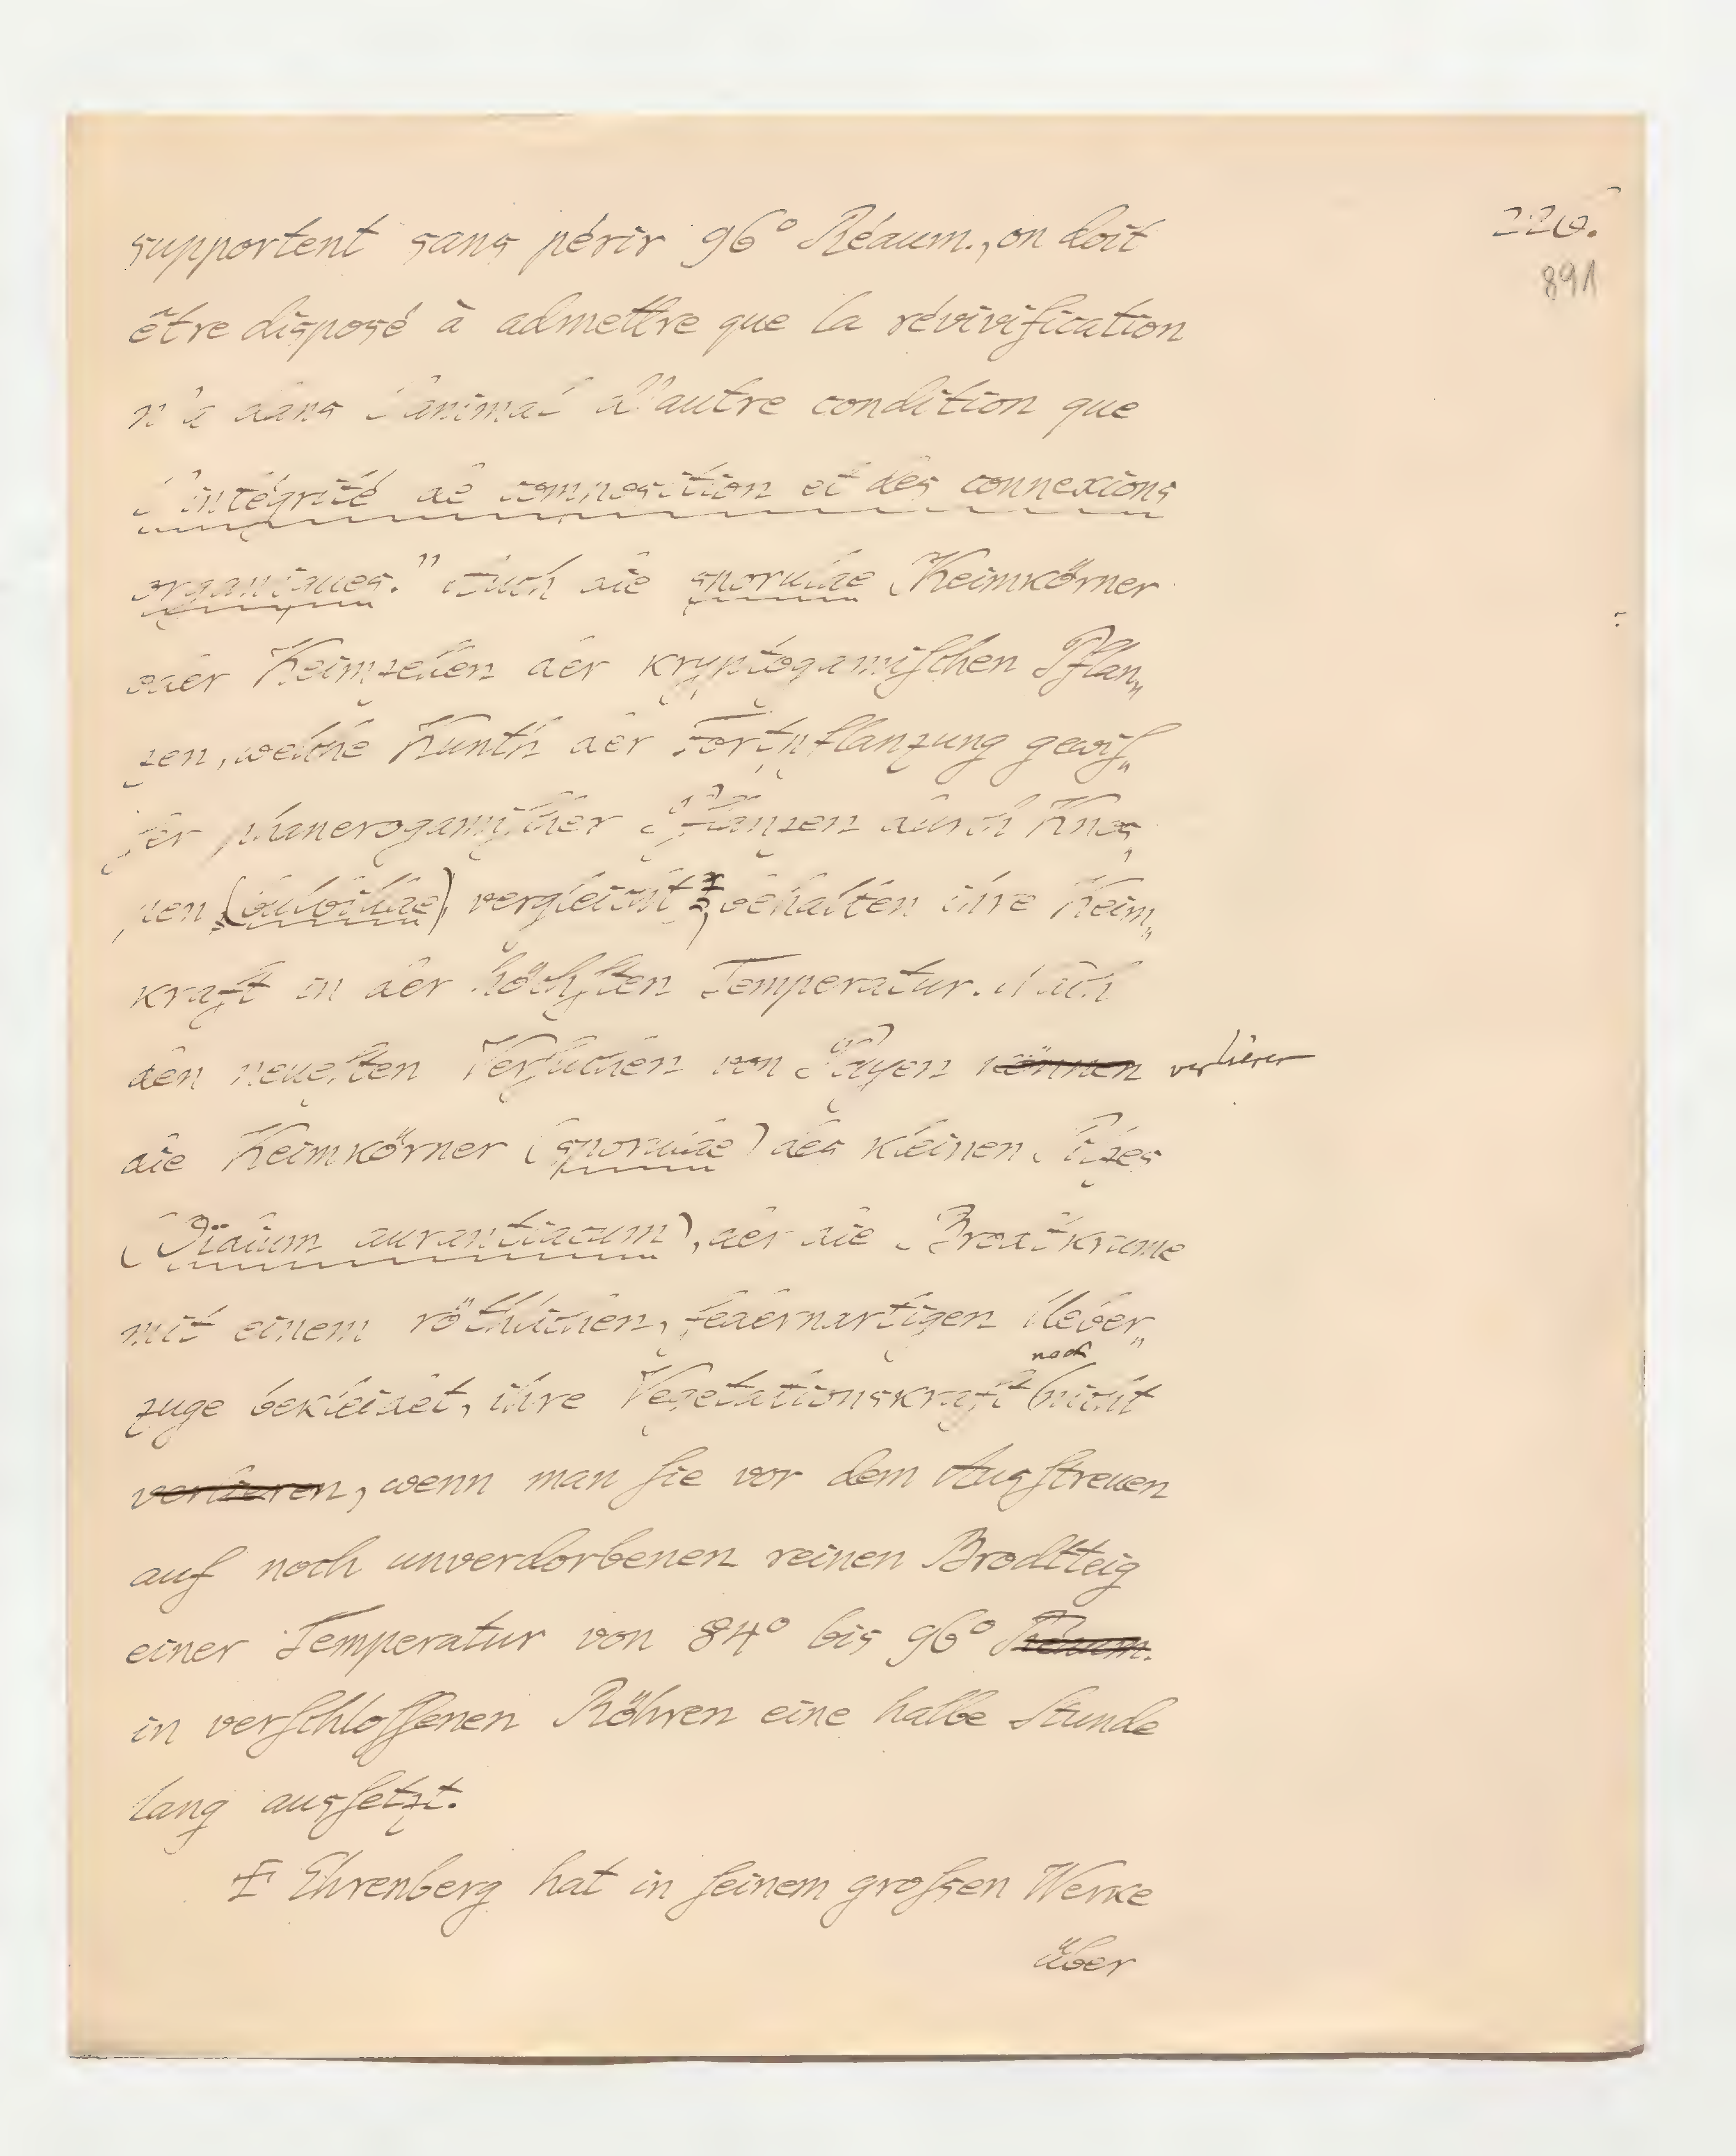 220.
891
supportent sans périr 96° Réaum., on doit
être disposé à admettre que la révivification
n'a dans l'animal d'autre condition que
l'intégrité de composition et des connexions
organiques." Auch die sporulae Keimkörner
oder Keimzellen der kryptogamiſchen Pflan„
zen, welche Kunth der Fortpflanzung gewiſ„
ſer phanerogamiſcher Pflanzen durch Knos„
pen (bulbillae) vergleicht, behalten ihre Keim„
kraft in der höchſten Temperatur. Nach
den neueſten Verſuchen von Payen können verlieren
die Keimkörner (sporulae) des kleinen Pilzes
(Oïdium aurantiacum), der die Brodtkrume
mit einem röthlichen, federnartigen Ueber„
noch
zuge bekleidet, ihre Vegetationskraft nicht
verlieren, wenn man ſie vor dem Ausſtreuen
auf noch unverdorbenen reinen Brodtteig
einer Temperatur von 84° bis 96° Réaum.
in verſchloſſenen Röhren eine halbe Stunde
lang ausſetzt.
Ehrenberg hat in ſeinem groſsen Werke
über